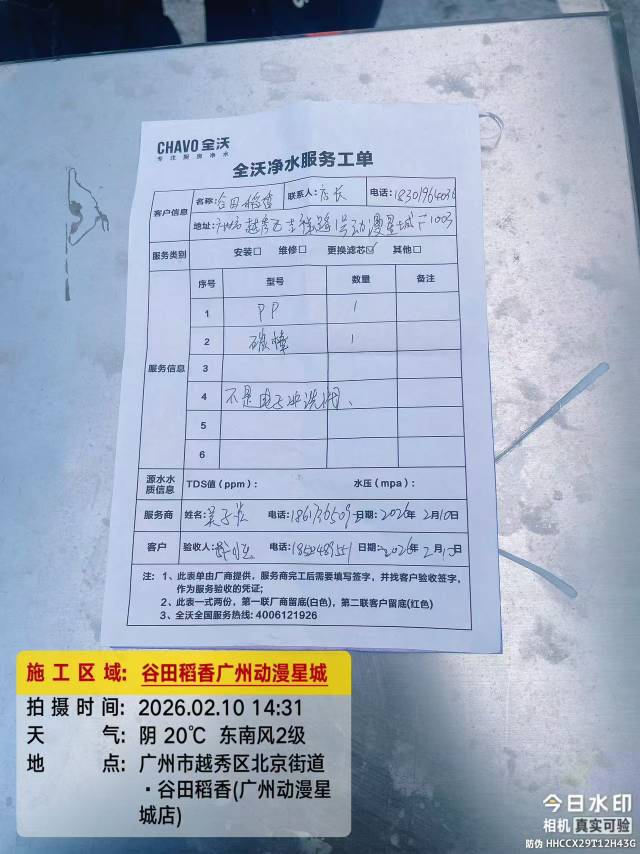 CHAVO 全沃
专注厨房净水
全沃净水服务工单
客户信息
名称: 谷田稻香 联系人: 店长 电话: 18301964036
地址: 广州市越秀区吉祥路1号动漫星城 1003
服务类别 安装□ 维修□ 更换滤芯☑ 其他□
服务信息
序号 型号 数量 备注
1 PP 1
2 碳棒 1
3
4 不是电子冲洗阀、
5
6
源水水质信息 TDS值（ppm）: 水压（mpa）:
服务商 姓名: 电话: 日期: 2026年 2月10日
客户 验收人: 电话: 18504489551 日期: 2026年 2月10日
注: 1、此表单由厂商提供，服务商完工后需要填写签字，并找客户验收签字，
作为服务验收的凭证;
2、此表一式两份，第一联厂商留底(白色)，第二联客户留底(红色)
3、全沃全国服务热线: 4006121926
施工区域: 谷田稻香广州动漫星城
拍摄时间: 2026.02.10 14:31
天气: 阴 20℃ 东南风2级
地点: 广州市越秀区北京街道
·谷田稻香(广州动漫星
城店)
今日水印
相机 真实可验
防伪 HHCCX29T12H43G